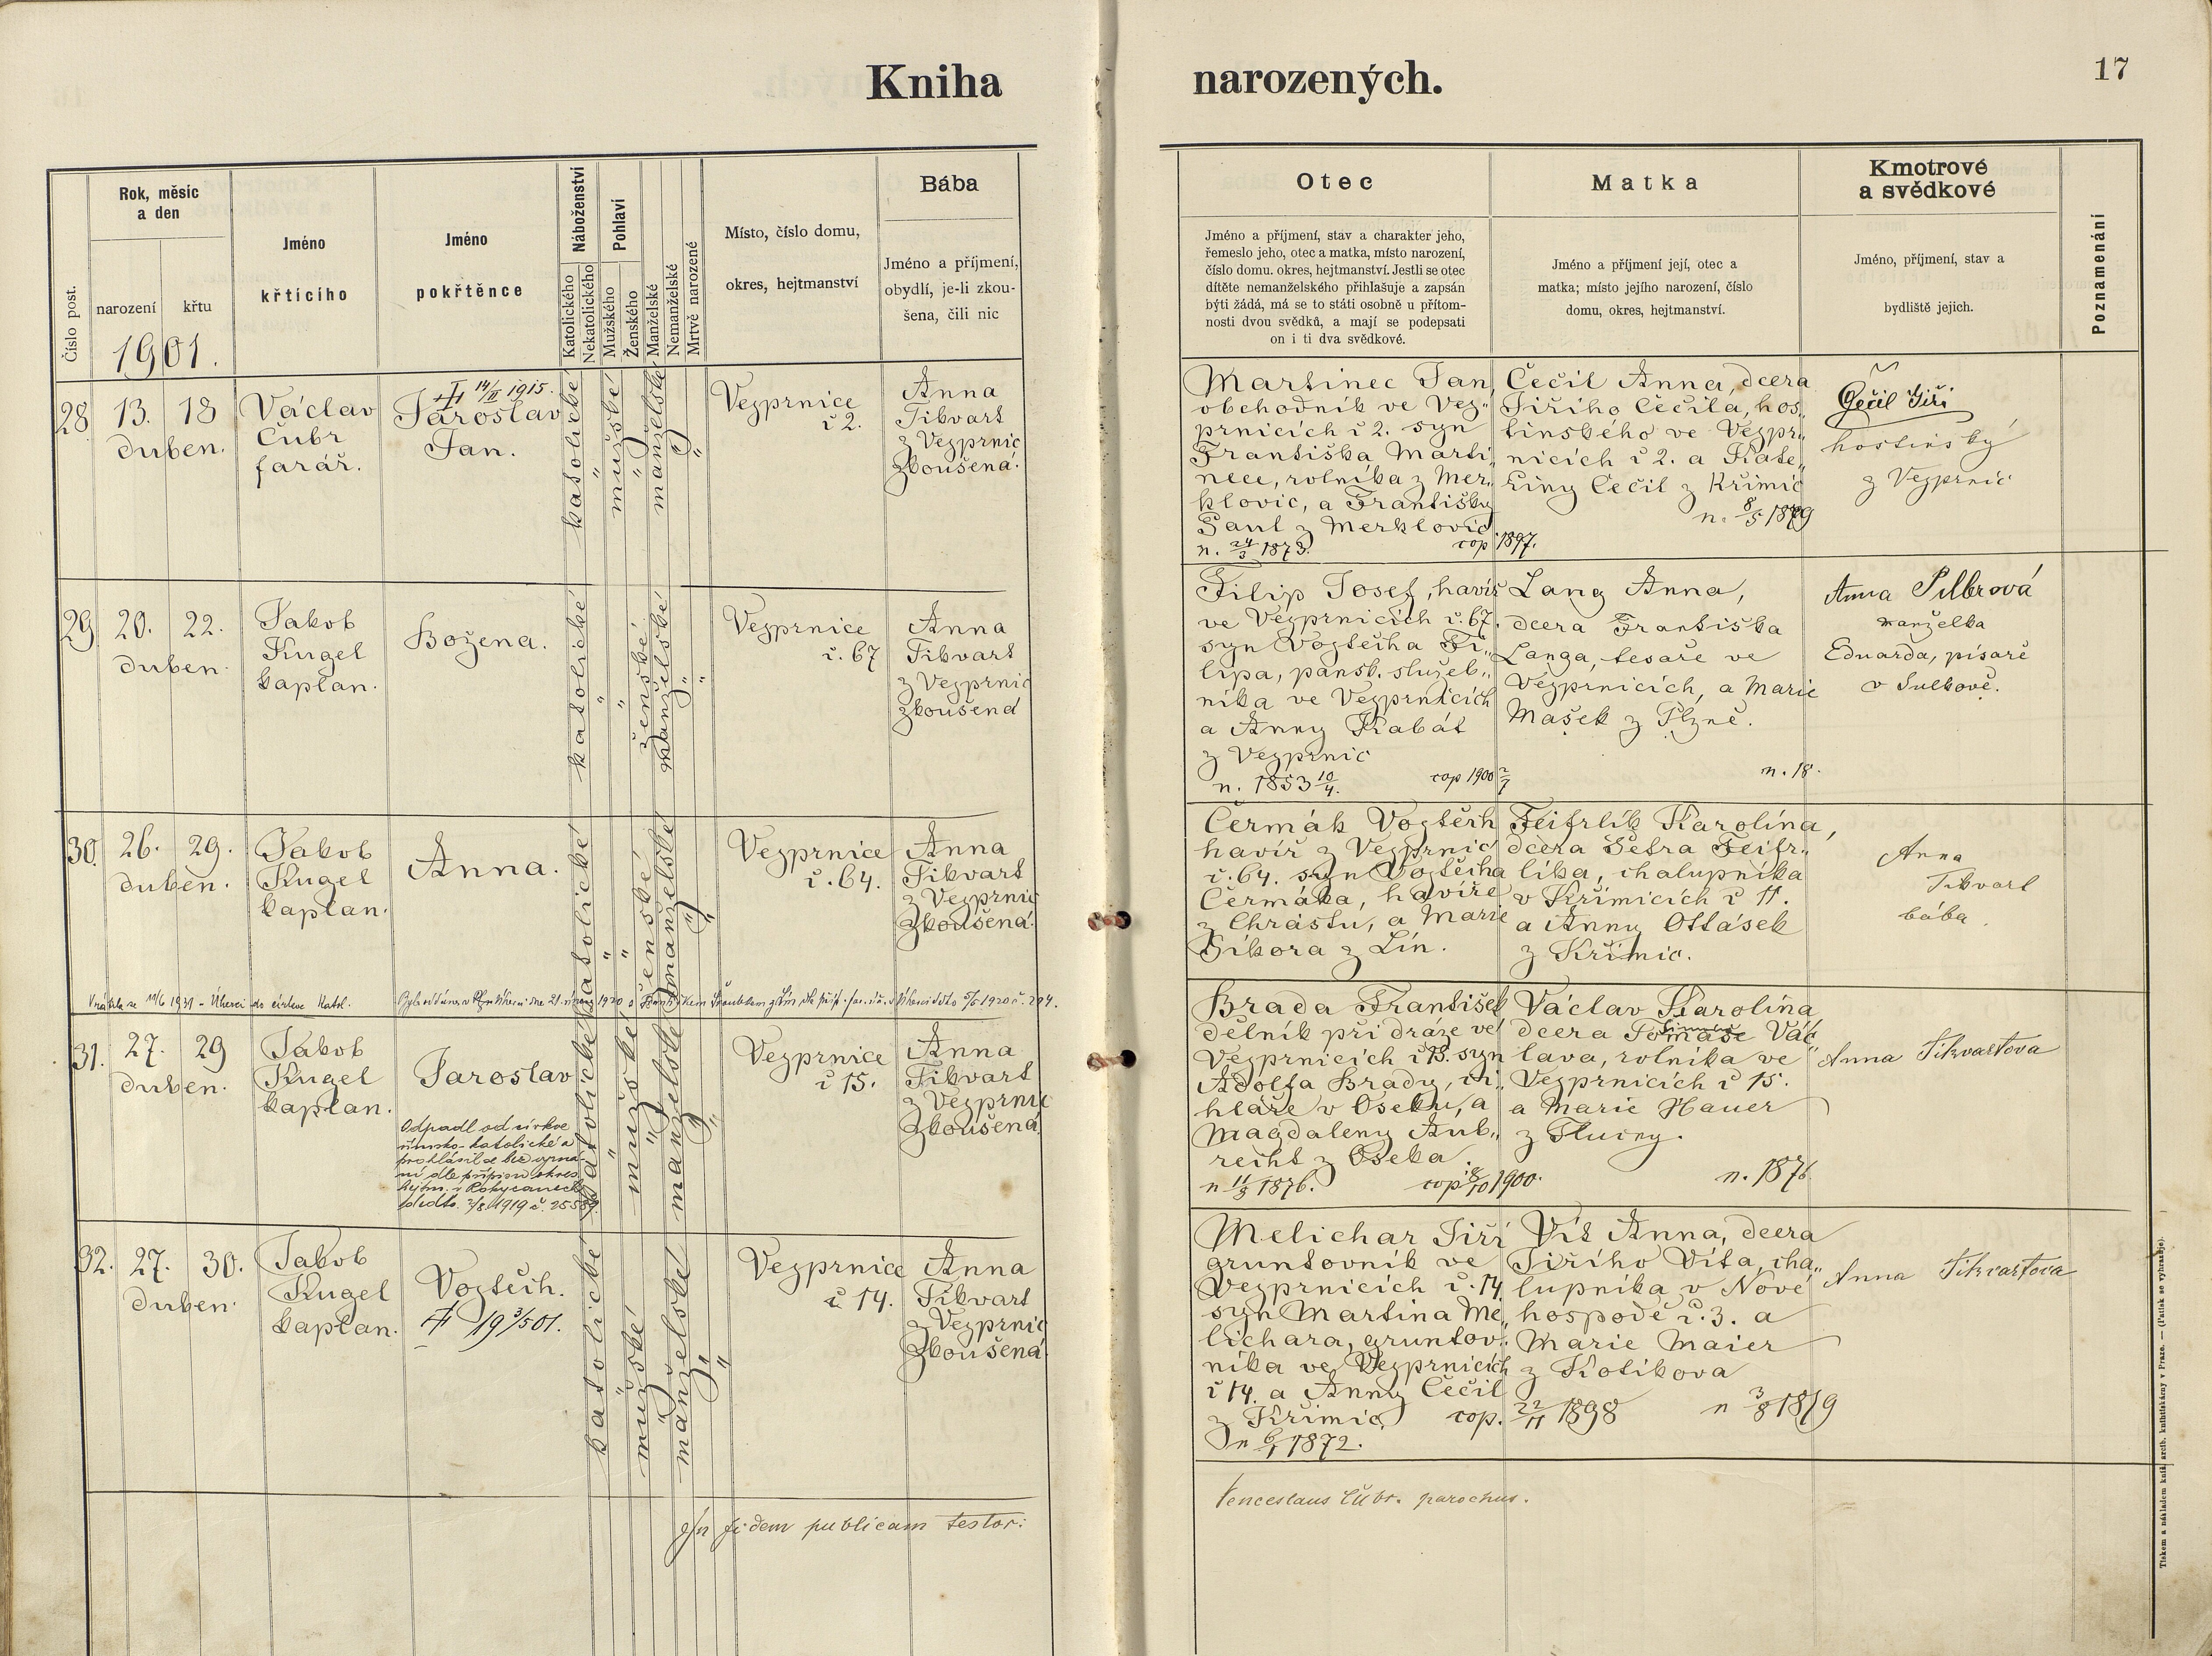 Kniha narozených.
17
Číslo post.
Rok, měsíc
a den
narození
křtu
1901.
Jméno
křtícího
Jméno
pokřtěnce
Náboženství
Katolického
Nekatolického
Pohlaví
Mužského
Ženského
Manželské
Nemanželské
Mrtvě narozené
Místo, číslo domu,
okres, hejtmanství
Bába
Jméno a příjmení,
obydlí, je-li zkou-
šena, čili nic
Otec
Jméno a příjmení, stav a charakter jeho,
řemeslo jeho, otec a matka, místo narození,
číslo domu. okres, hejtmanství. Jestli se otec
dítěte nemanželského přihlašuje a zapsán
býti žádá, má se to státi osobně u přítom-
nosti dvou svědků, a mají se podepsati
on i ti dva svědkové.
Matka
Jméno a příjmení její, otec a
matka; místo jejího narození, číslo
domu, okres, hejtmanství.
Kmotrové
a svědkové
Jméno, příjmení, stav a
bydliště jejich.
Poznamenání
28
13. 18
duben.
Václav
Čubr
farář.
14/II 1915.
Jaroslav
Jan.
katolické
"
mužské
"
manželské
"
"
Vejprnice
č 2.
Anna
Tikvart
z Vejprnic
zkoušená.
Martinec Jan,
obchodník ve Vej„
prnicích č 2. syn
Františka Marti„
nece, rolníka z Mer„
klovic, a Františky
Paul z Merklovic
n. 24/3 1873.
cop 1897.
Čečil Anna, dcera
Jiřího Čečila, hos„
tinského ve Vejpr„
nicích č 2. a Kate„
řiny Čečil z Křimic
n. 8/5 1879
Čečil Jiří
hostinský
z Vejprnic
29
20. 22.
duben.
Jakob
Kugel
kaplan.
Božena.
katolické
"
"
ženské
manželské
"
"
Vejprnice
č. 67
Anna
Tikvart
z Vejprnic
zkoušená
Filip Josef, havíř
ve Vejprnicích č. 67.
syn Vojtěcha Fi„
lipa, pansk. služeb„
níka ve Vejprnicích
a Anny Kabát
z Vejprnic
n. 1853 10/4.
cop 1900 2/7
Lang Anna,
dcera Františka
Langa, tesaře ve
Vejprnicích, a Marie
Mašek z Plzně.
n. 18.
Anna Pilbrová
manželka
Eduarda, písaře
v Sulkově.
30.
26. 29.
duben.
Jakob
Kugel
kaplan.
Anna.
katolické
"
"
ženské
manželské
"
"
Vejprnice
č. 64.
Anna
Tikvart
z Vejprnic
zkoušená.
Čermák Vojtěch
havíř z Vejprnic
č. 64. syn Vojtěcha
Čermáka, havíře
z Chrástu, a Marie
Síkora z Lín.
Feitrlík Karolína,
dcera Petra Feitr„
líka, chalupníka
v Křimicích č 11.
a Anny Ottásek
z Křimic.
Anna
Tikvart
bába
31.
27. 29
duben.
Jakob
Kugel
kaplan.
Jaroslav
Odpadl od církve
římsko-katolické a
prohlásil se bez vyzná-
ní dle přípisu okres.
hejtm. v Rokycanech
katolické
"
mužské
"
manželské
"
"
Vejprnice
č 15.
Anna
Tikvart
z Vejprnic
zkoušená
Brada František
dělník při dráze ve
Vejprnicích č 15. syn
Adolfa Brady, ci„
hláře v Oseku, a
Magdaleny Aub„
recht z Oseka.
n 11/3 1876.
cop 18/10 1900.
Václav Karolína
dcera Tomáše Vác„
lava, rolníka ve
Vejprnicích č 15.
a Marie Hauer
z Tlucny.
n. 1876
Anna Tikvartova
32.
27. 30.
duben.
Jakob
Kugel
kaplan.
Vojtěch.
19 3/5 01.
katolické
"
mužské
"
manželské
"
"
Vejprnice
č 14.
Anna
Tikvart
z Vejprnic
zkoušená.
Melichar Jiří
gruntovník ve
Vejprnicích č. 14
syn Martina Me„
lichara, gruntov„
níka ve Vejprnicích
č 14. a Anny Čečil
z Křimic.
n 6/1 1872.
cop. 22/11 1898
Vít Anna, dcera
Jiřího Víta, cha„
lupníka v Nové
hospodě č. 3. a
Marie Maier
z Kotíkova
n 3/8 1879
Anna Tikvartova
In fidem publicam testor:
Venceslaus Čubr. parochus.
Tiskem a nákladem kníž. arcib. knihtiskárny v Praze. — (Patisk se vyhrazuje).